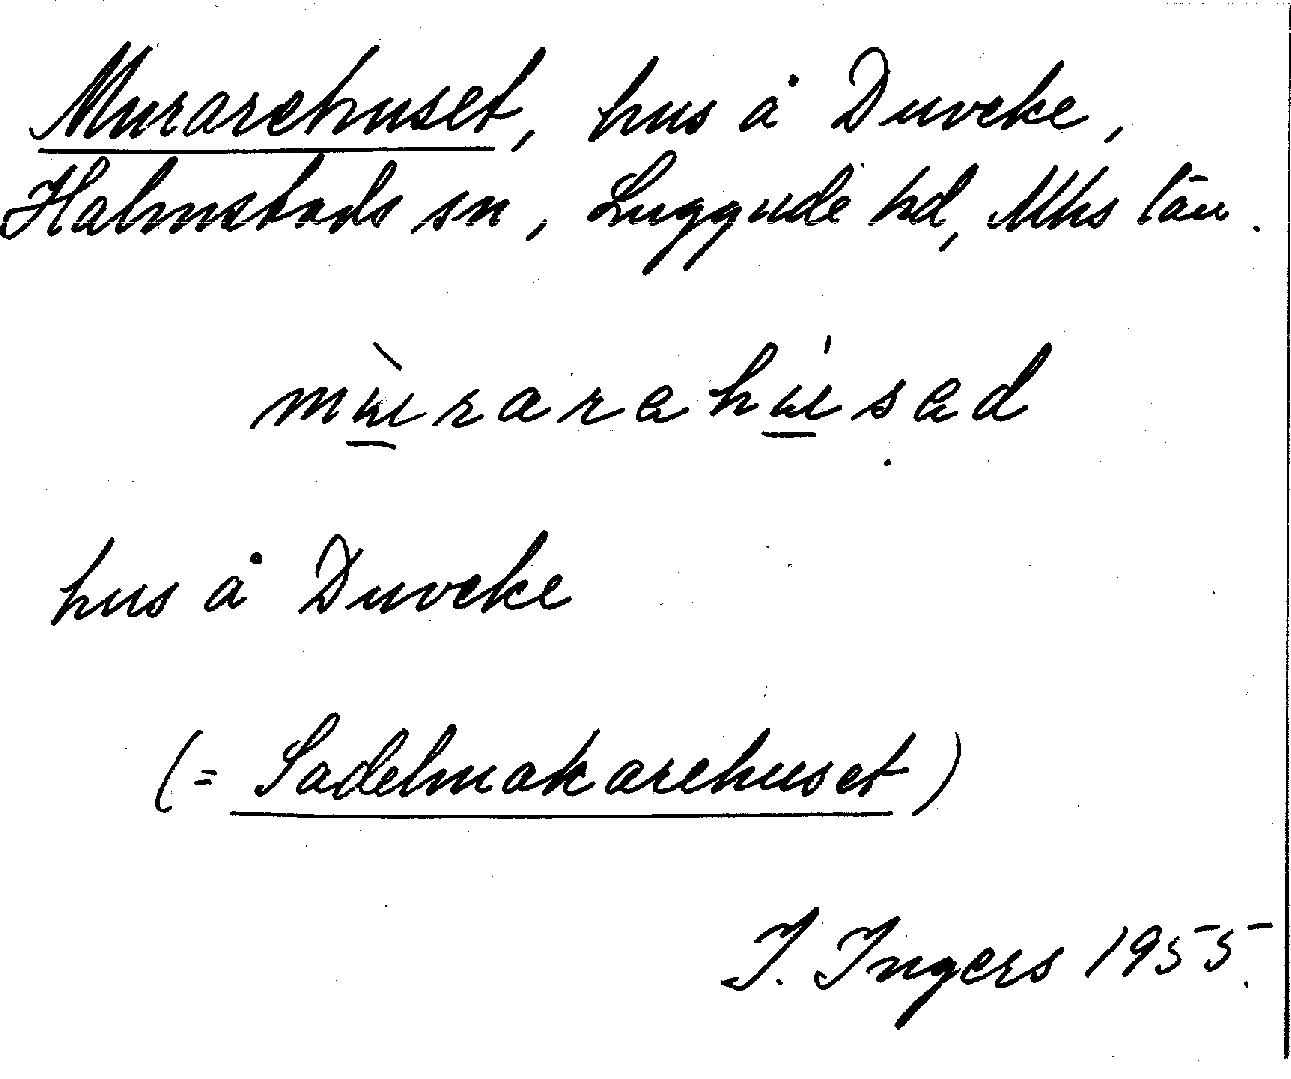 Murarehuset, hus å Duveke,
Halmstads sn, Luggude hd, Mhs län.
mɯ̱̀rarahɯ̱́sad
hus å Duveke
(= Sadelmakarehuset)
I. Ingers 1955.